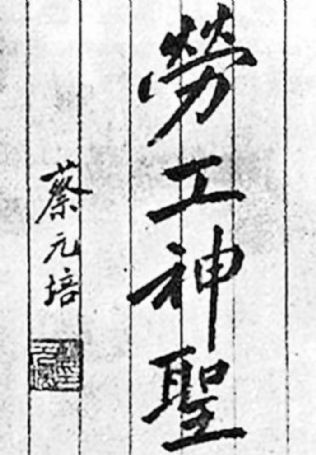 勞工神聖
蔡元培